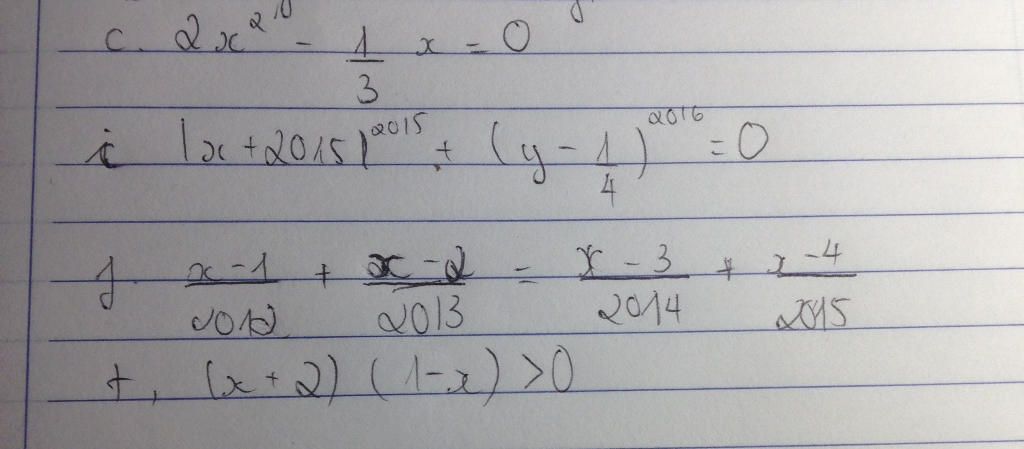 c. 2x² - 1/3 x = 0
i |x + 2015|²⁰¹⁵ + (y - 1/4)²⁰¹⁶ = 0
j. x - 1/2012 + x - 2/2013 = x - 3/2014 + x - 4/2015
t, (x + 2) (1 - x) > 0